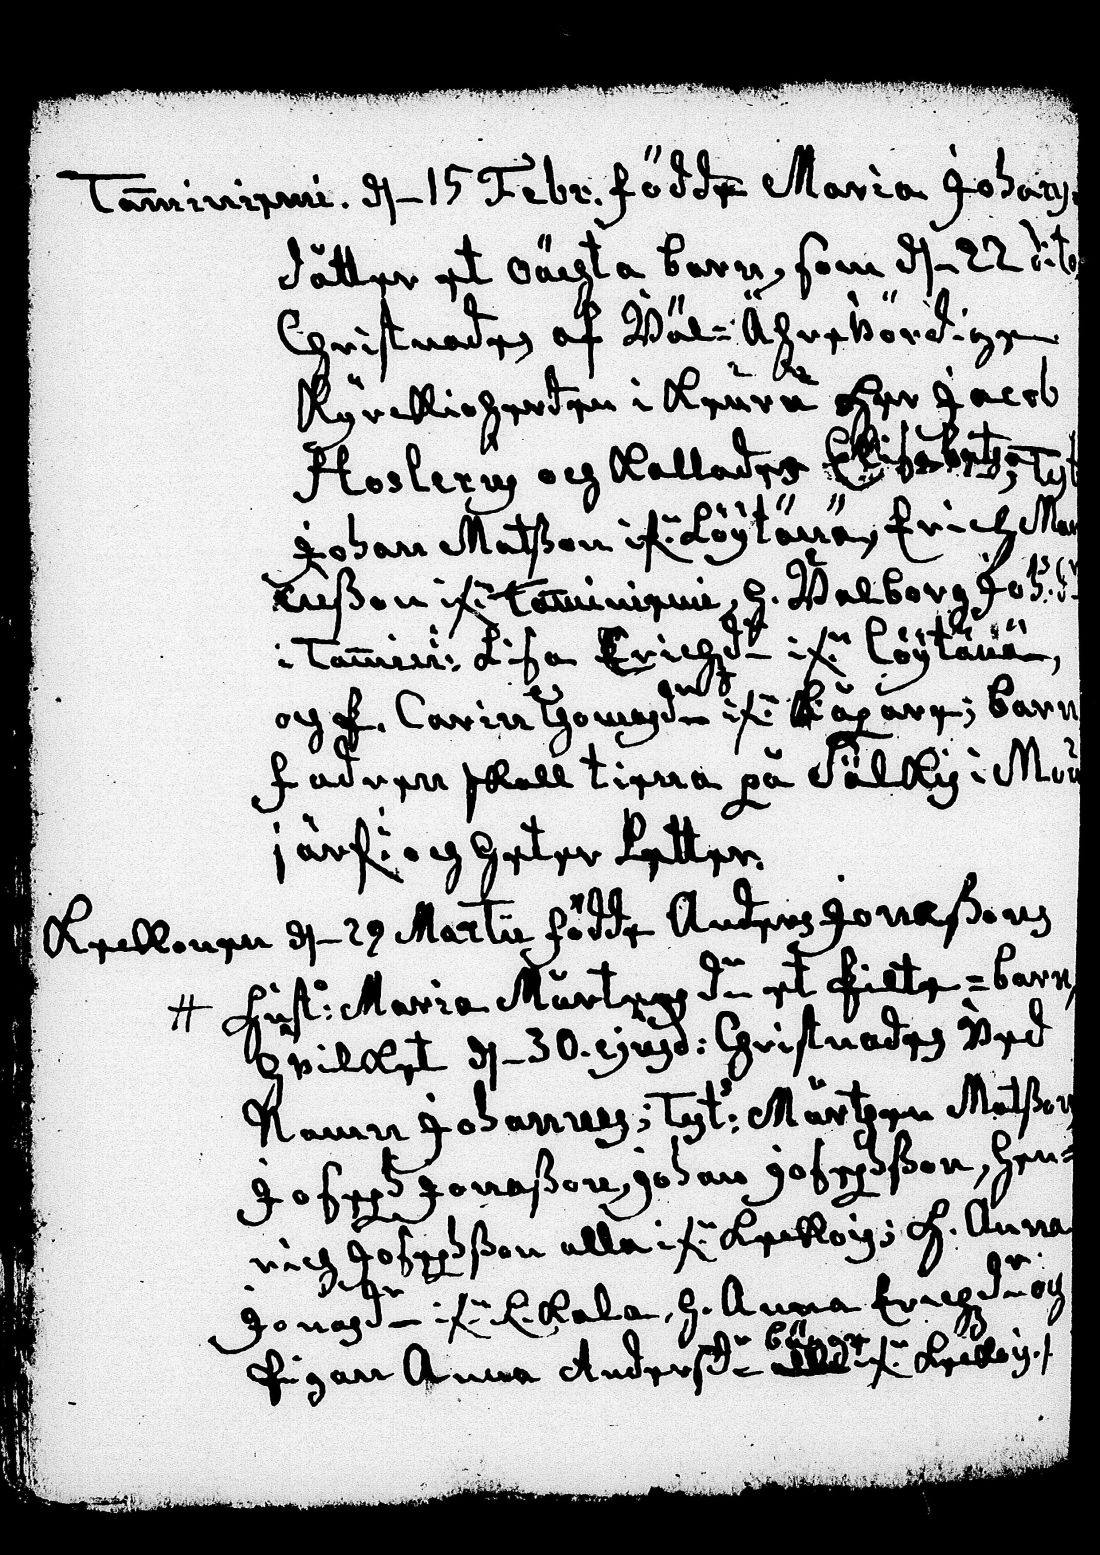 Tam̄iniemi. dn 15 Febr. födde Maria Johans
dotter et oächta barn, som dn 22 dito
Christnades af Wäl=Ährewördige
Kyrckioherden i Keuru Her Jacob
Hoslerus och kallades Elisabeth; Test
Johan Matßon ifr: Löytänä, Erich Mar
cußon ifr: Tam̄iniemi, h. Walborg Joh: dr
i Tam̄in: Lisa Erichzdr ifr: Löytänä,
och p. Carin Thomasdr ifr: barn
fadren skall tiena på i Mou
järfi och heter Petter.
Krekonen dn 29 Martii födde Anders Jonaßons
# hust: Maria Mårtensdr et Pilte=barn,
hvilket dn 30. ejusd: Christnades wed
Namn Johannes; Test: Mårthen Matßon,
Joseph Jonaßon, Johan Josephßon, Hen=
rich Josephßon alla ifr: h. Anna
Jonasdr ifr: h. Anna Erichzdr och
Pigan Anna Andersdr både ifr: